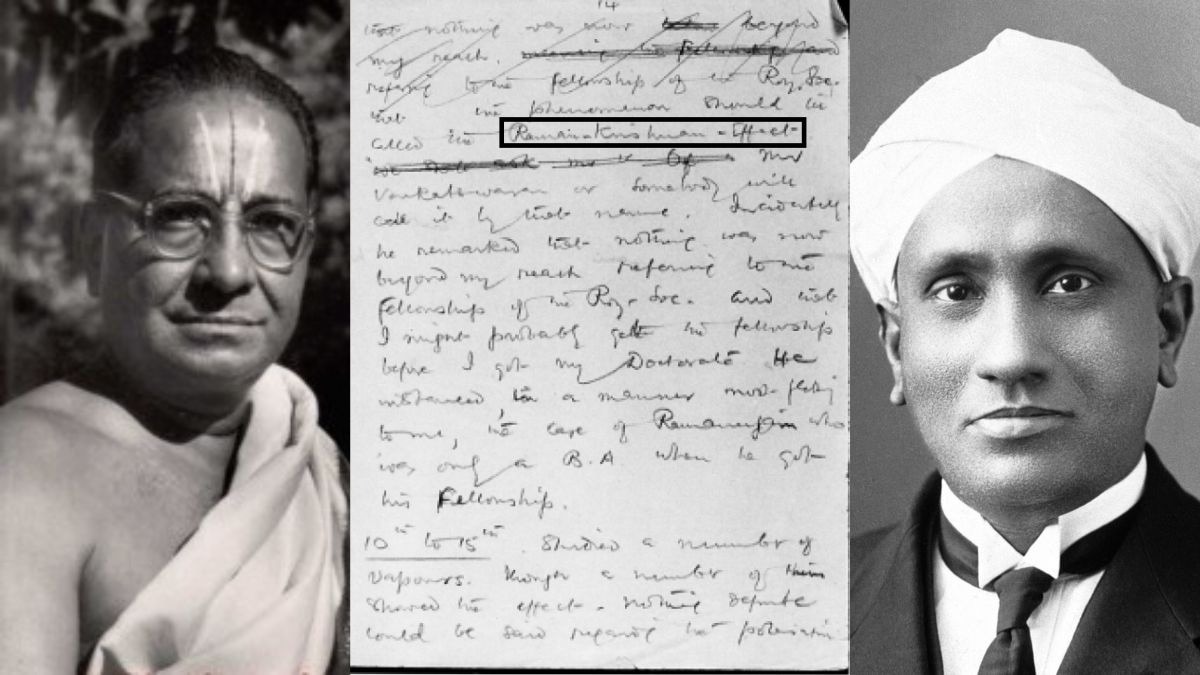 14
that nothing was now beyond
my reach.
referring to the fellowship of the Roy. Soc.
that the phenomenon should be
called the Raman-Krishnan-Effect
Mr
Venkateswaran or somebody will
call it by that name. Incidentally
he remarked that nothing was now
beyond my reach referring to the
Fellowship of the Roy. Soc. and that
I might probably get the fellowship
before I got my Doctorate He
instanced, in a manner most
to me, the case of Ramanujan who
was only a B.A when he got
his Fellowship.
10th to 15th. Studied a number of
vapours. a number of them
showed the effect. Nothing definite
could be said regarding the